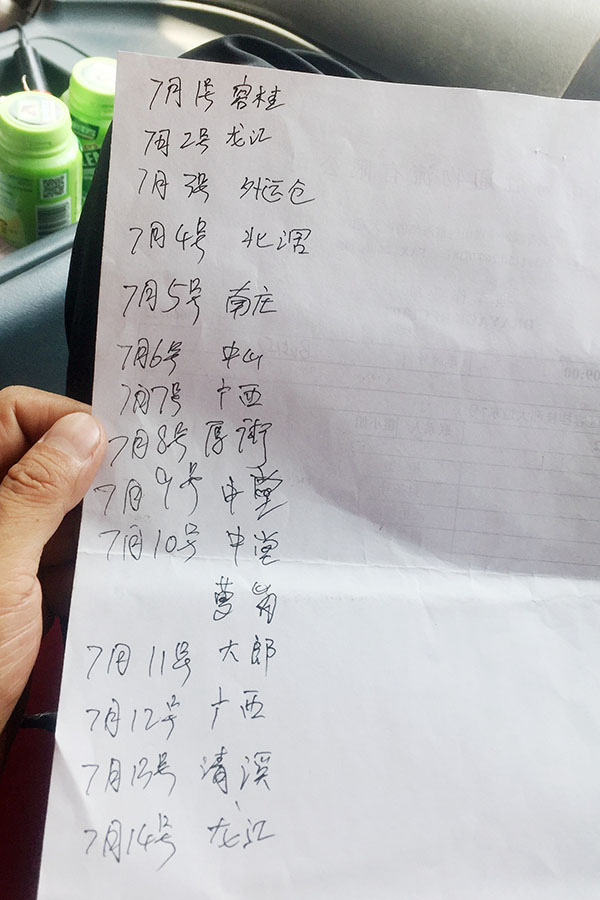 7月1号 容桂
7月2号 龙江
7月3号 外运仓
7月4号 北滘
7月5号 南庄
7月6号 中山
7月7号 广西
7月8号 厚街
7月9号 中堂
7月10号 中堂
黄岗
7月11号 大郎
7月12号 广西
7月13号 清溪
7月14号 龙江